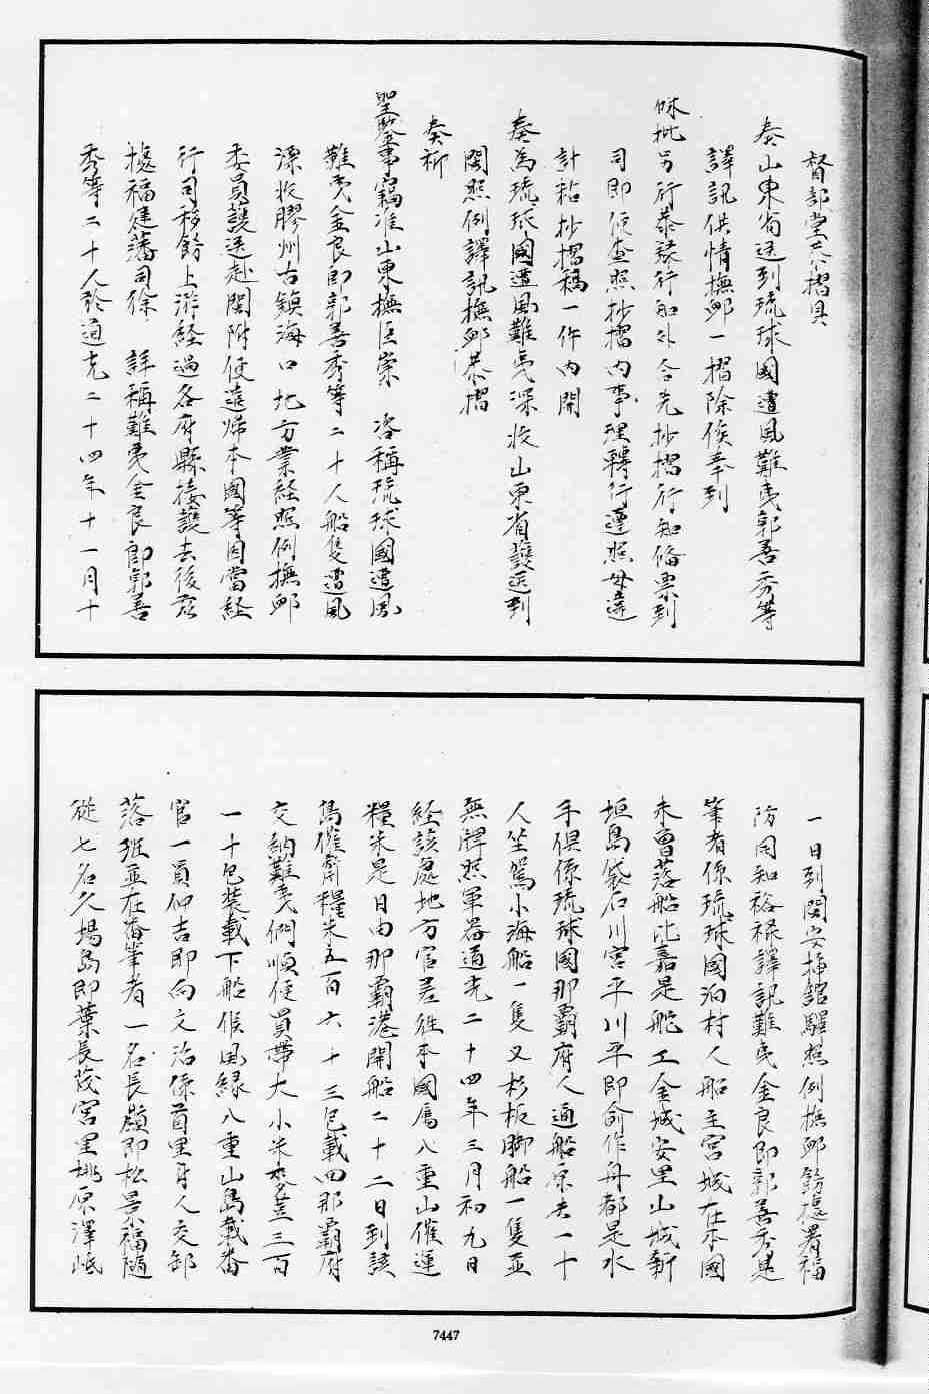 督部堂 摺具
奏山東省送到琉球國遭風難夷郭善秀等
譯訊供情撫䘏一摺除俟奉到
硃批另行恭錄行知外合先抄摺行知俻票到
司即便查照抄摺內事理轉行遵照毋違
計粘抄摺稿一件內開
奏為琉球國遭風難夷漂收山東省護送到
閩照例譯訊撫䘏恭摺
奏祈
聖鑒事竊准山東撫臣崇 咨稱琉球國遭風
難夷金良郎郭善秀等二十人船隻遭風
漂收膠州古鎮海口地方業経照例撫䘏
委員護送赴閩附便遣歸本國等因當経
行司移飭上游経過各府縣接護去後茲
據福建藩司徐 詳稱難夷金良郎郭善
秀等二十人於道光二十四年十一月十
一日到閩安揷館驛照例撫䘏飭據署福
防同知裕祿譯訊難夷金良郎郭善秀是
筆者係琉球國泊村人船主宮城在本國
未曾落船比嘉是舵工金城安里山城新
垣島袋石川宮平川平即俞作舟都是水
手俱係琉球國那霸府人通船原共一十
人坐駕小海船一隻又杉板脚船一隻並
無牌照軍器道光二十四年三月初九日
経該處地方官差往本國属八重山催運
糧米是日由那霸港開船二十二日到該
島催齊糧米五百六十三包載回那霸府
交納難夷們順便買帶大小米麥荳三百
一十包裝載下船候風緣八重山島載番
官一員仲吉即向文治係首里府人交卸
落班並在番筆者一名長嶺即松景福隨
從七名久場島即葉長茂宮里桃原澤岻
7447